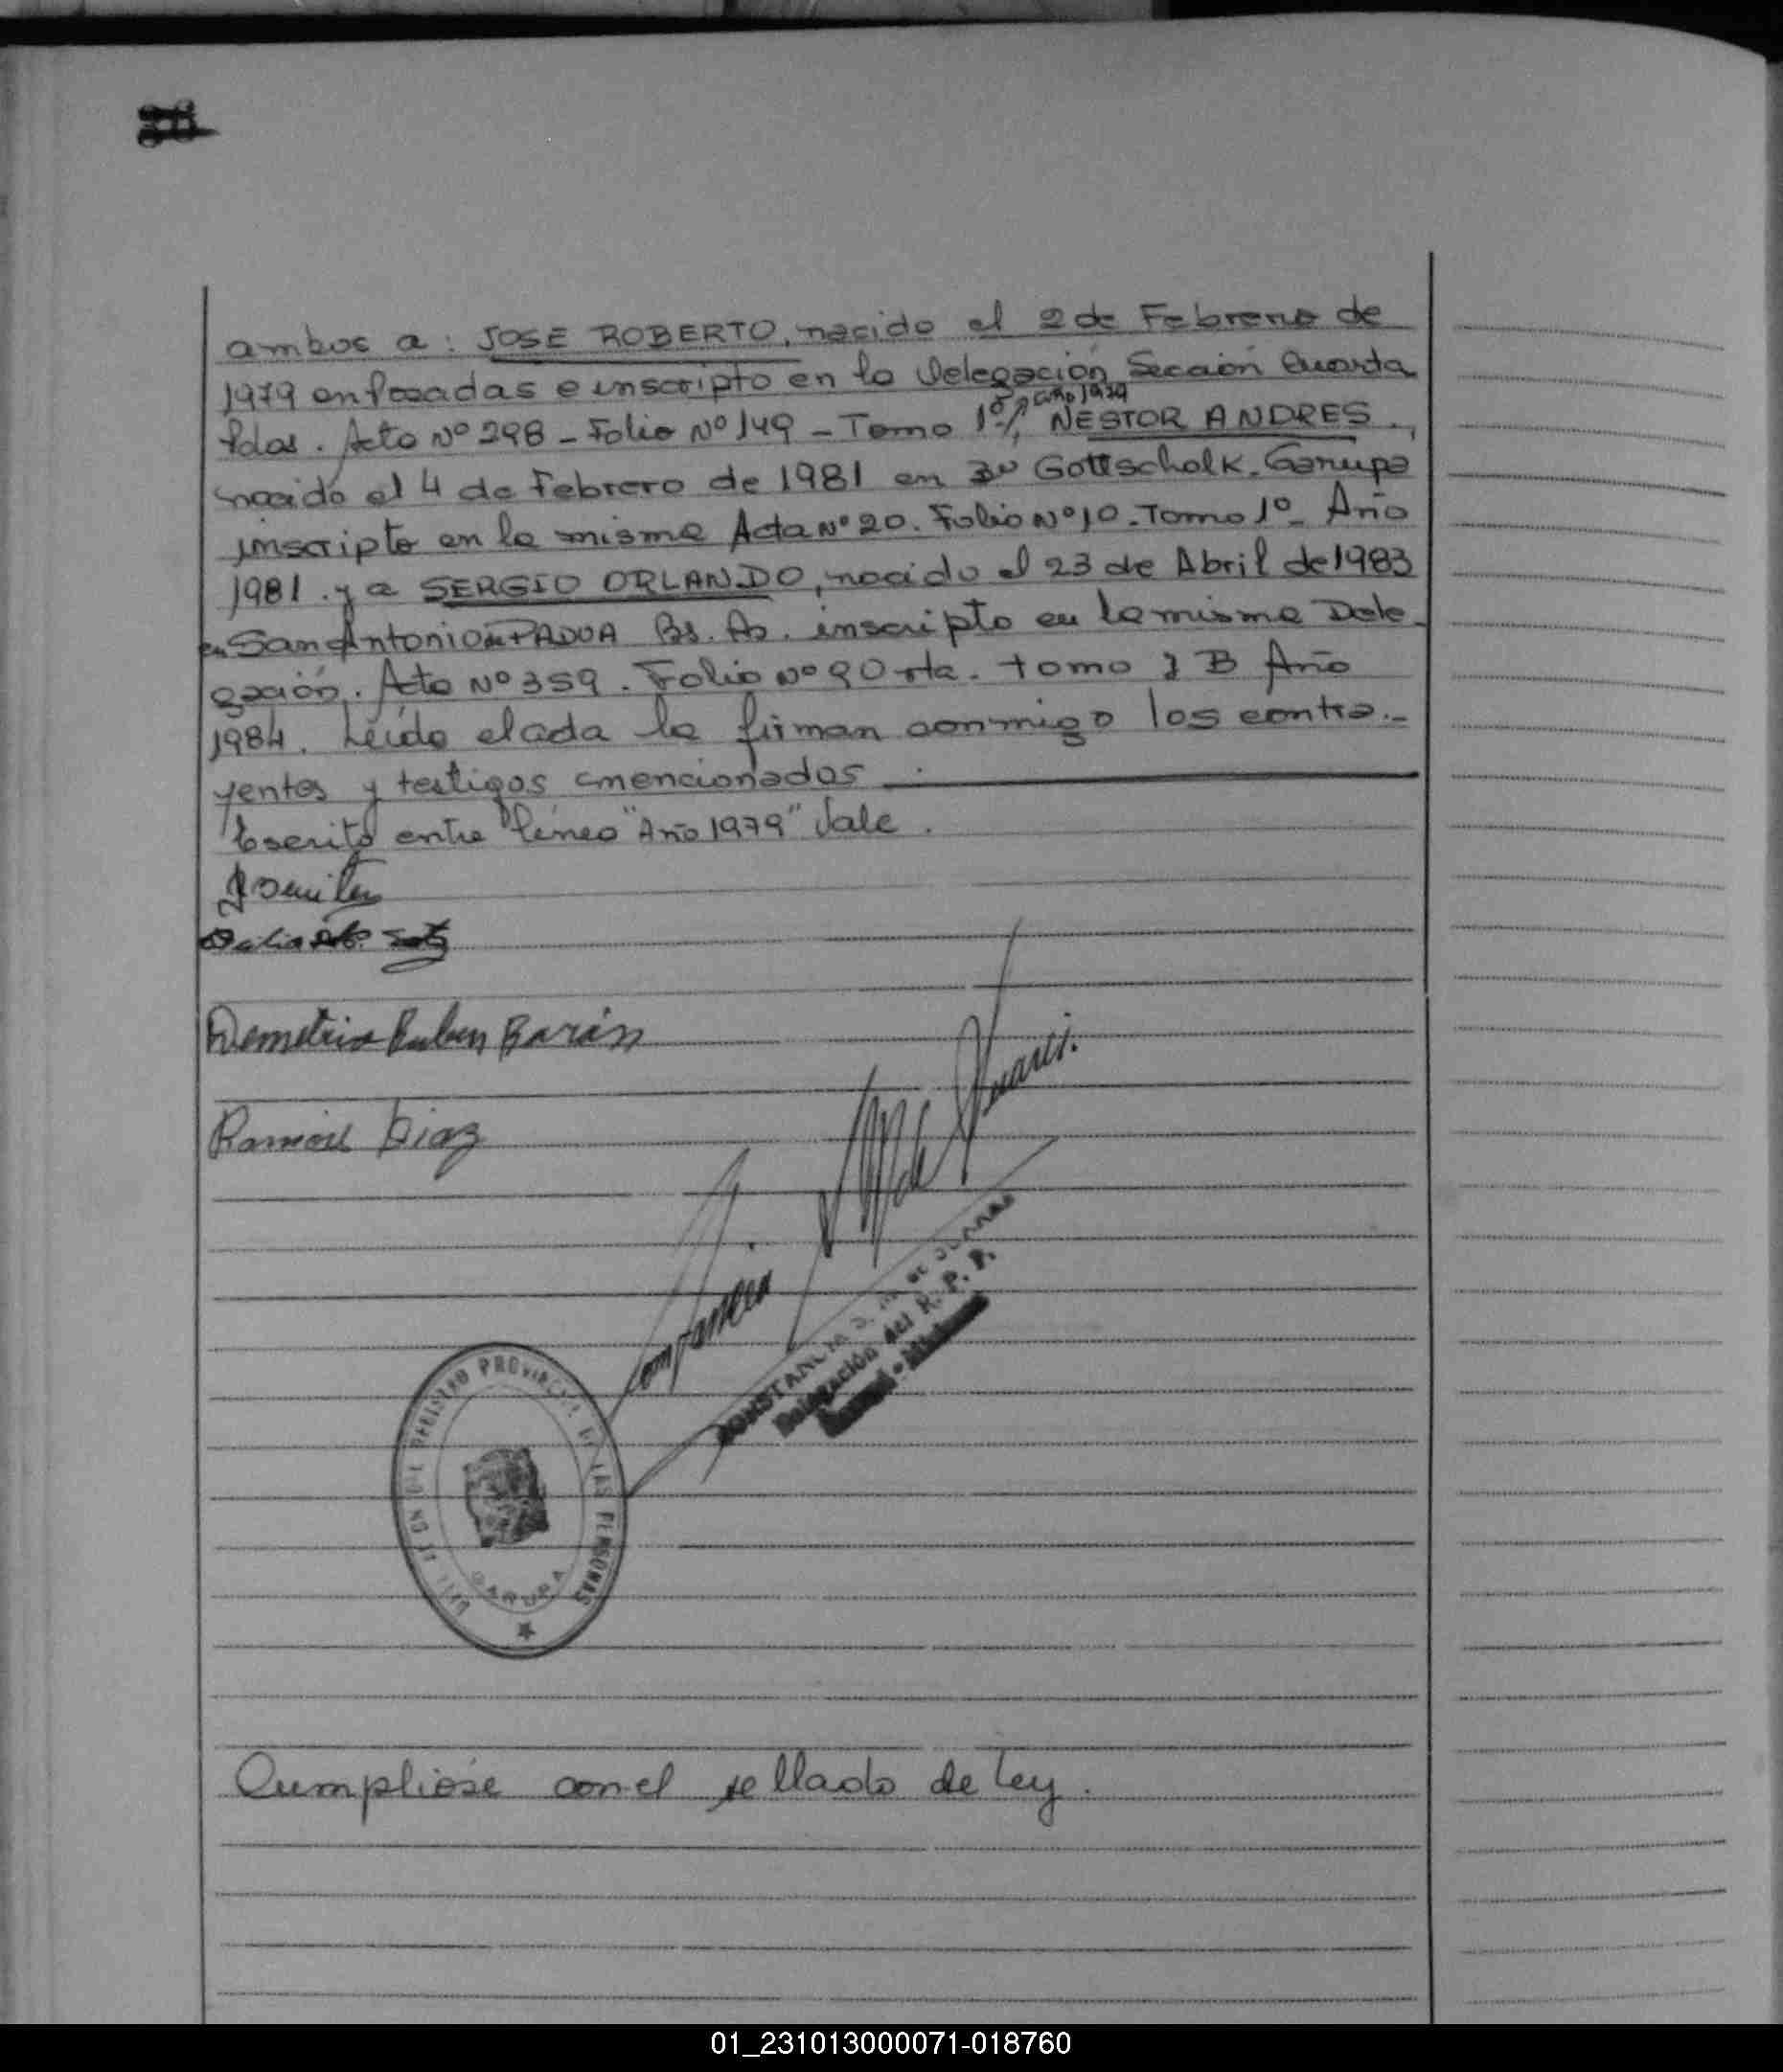 ambos a: JOSE ROBERTO, nacido el 2 de Febrero de
1979 en Posadas e inscripto en la Delegación Sección Cuarta
Pdas. Acta Nº 298 - Folio Nº 149 - Tomo 1º año 1979 NESTOR ANDRES.,
nacido el 4 de Febrero de 1981 en Bº Gottschalk. Garupa
inscripto en la misma Acta Nº 20. Folio Nº 10. Tomo 1º- Año
1981. y a SERGIO ORLANDO, nacido el 23 de Abril de 1983
en San Antonio de PADUA Bs. As. inscripto en la misma Dele-
gación. Acta Nº 359. Folio Nº 90 vta. tomo 1 B Año
1984. Leída el acta la firman conmigo los contra.-
yentes y testigos mencionados.
Escrito entre línea "Año 1979" Vale.
Demetrio Ruben Barán
Ramón Diaz
CONSTANCIA S. M. DE
Delegación del R. P. P.
Garupá - Misiones
DELEGACION DEL REGISTRO PROVINCIAL DE LAS PERSONAS
GARUPA
Cumplióse con el sellado de Ley.
01_231013000071-018760